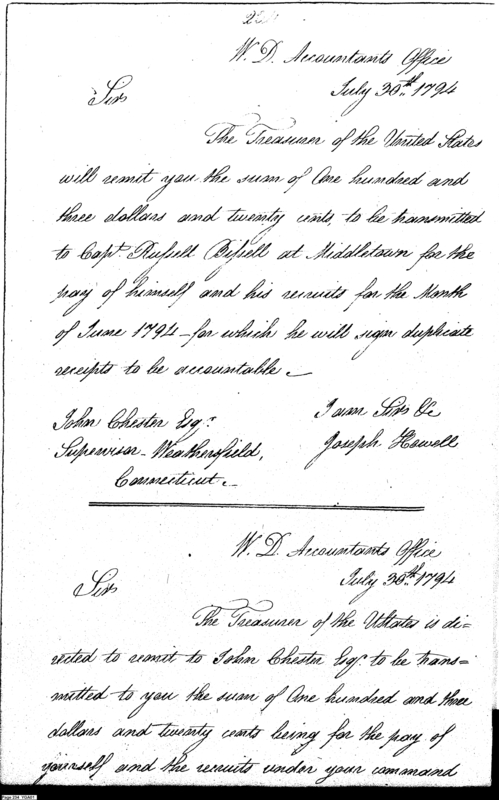 W. D. Accountants Office
July 30th 1794
Sir
The Treasurer of the United States
will remit you the sum of One hundred and
three dollars and twenty cents, to be transmitted
to Capt. Russell Bissell at Middletown for the
pay of himself and his recruits for the Month
of June 1794 - for which he will sign duplicate
receipts to be accountable -
John Chester Esqr.
Supervisor - Weathersfield,
Connecticut -
I am Sir &c
Joseph Howell
W. D. Accountants Office
July 30th 1794
Sir
The Treasurer of the UStates is di=
rected to remit to John Chester Esqr. to be trans=
mitted to you the sum of One hundred and three
dollars and twenty cents being for the pay of
yourself and the recruits under your command